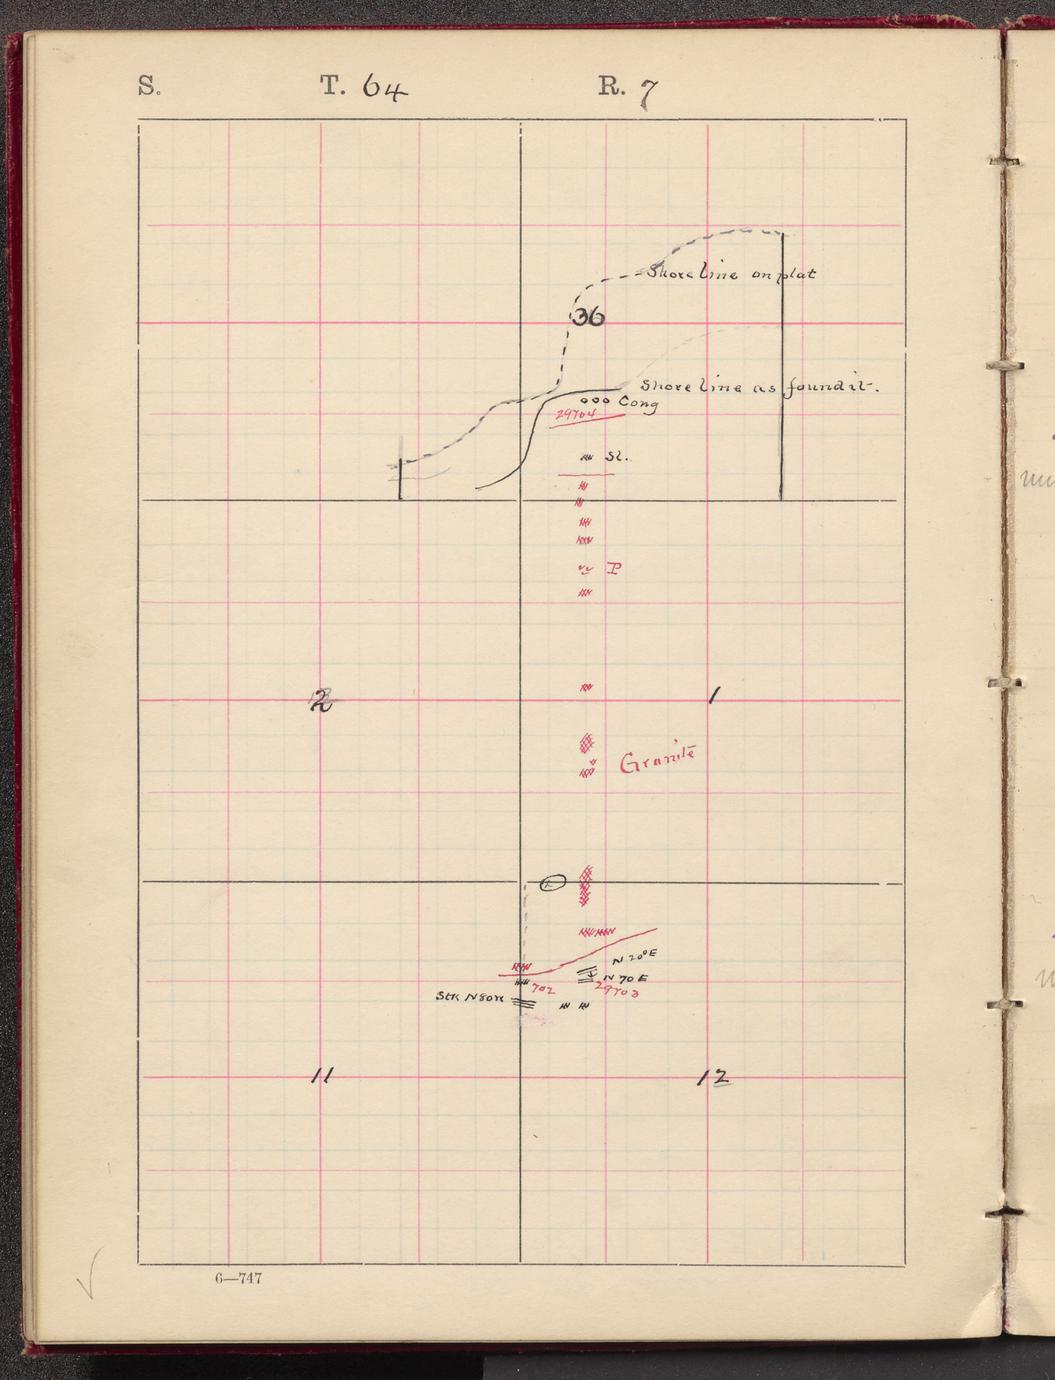 S. T. 64 R. 7
Shore line on plat
36
Shore line as found it.
Cong
29704
Sl.
P
2
1
Granite
N 20° E
N 70 E
702
29703
Stk N80W
11
12
6—747